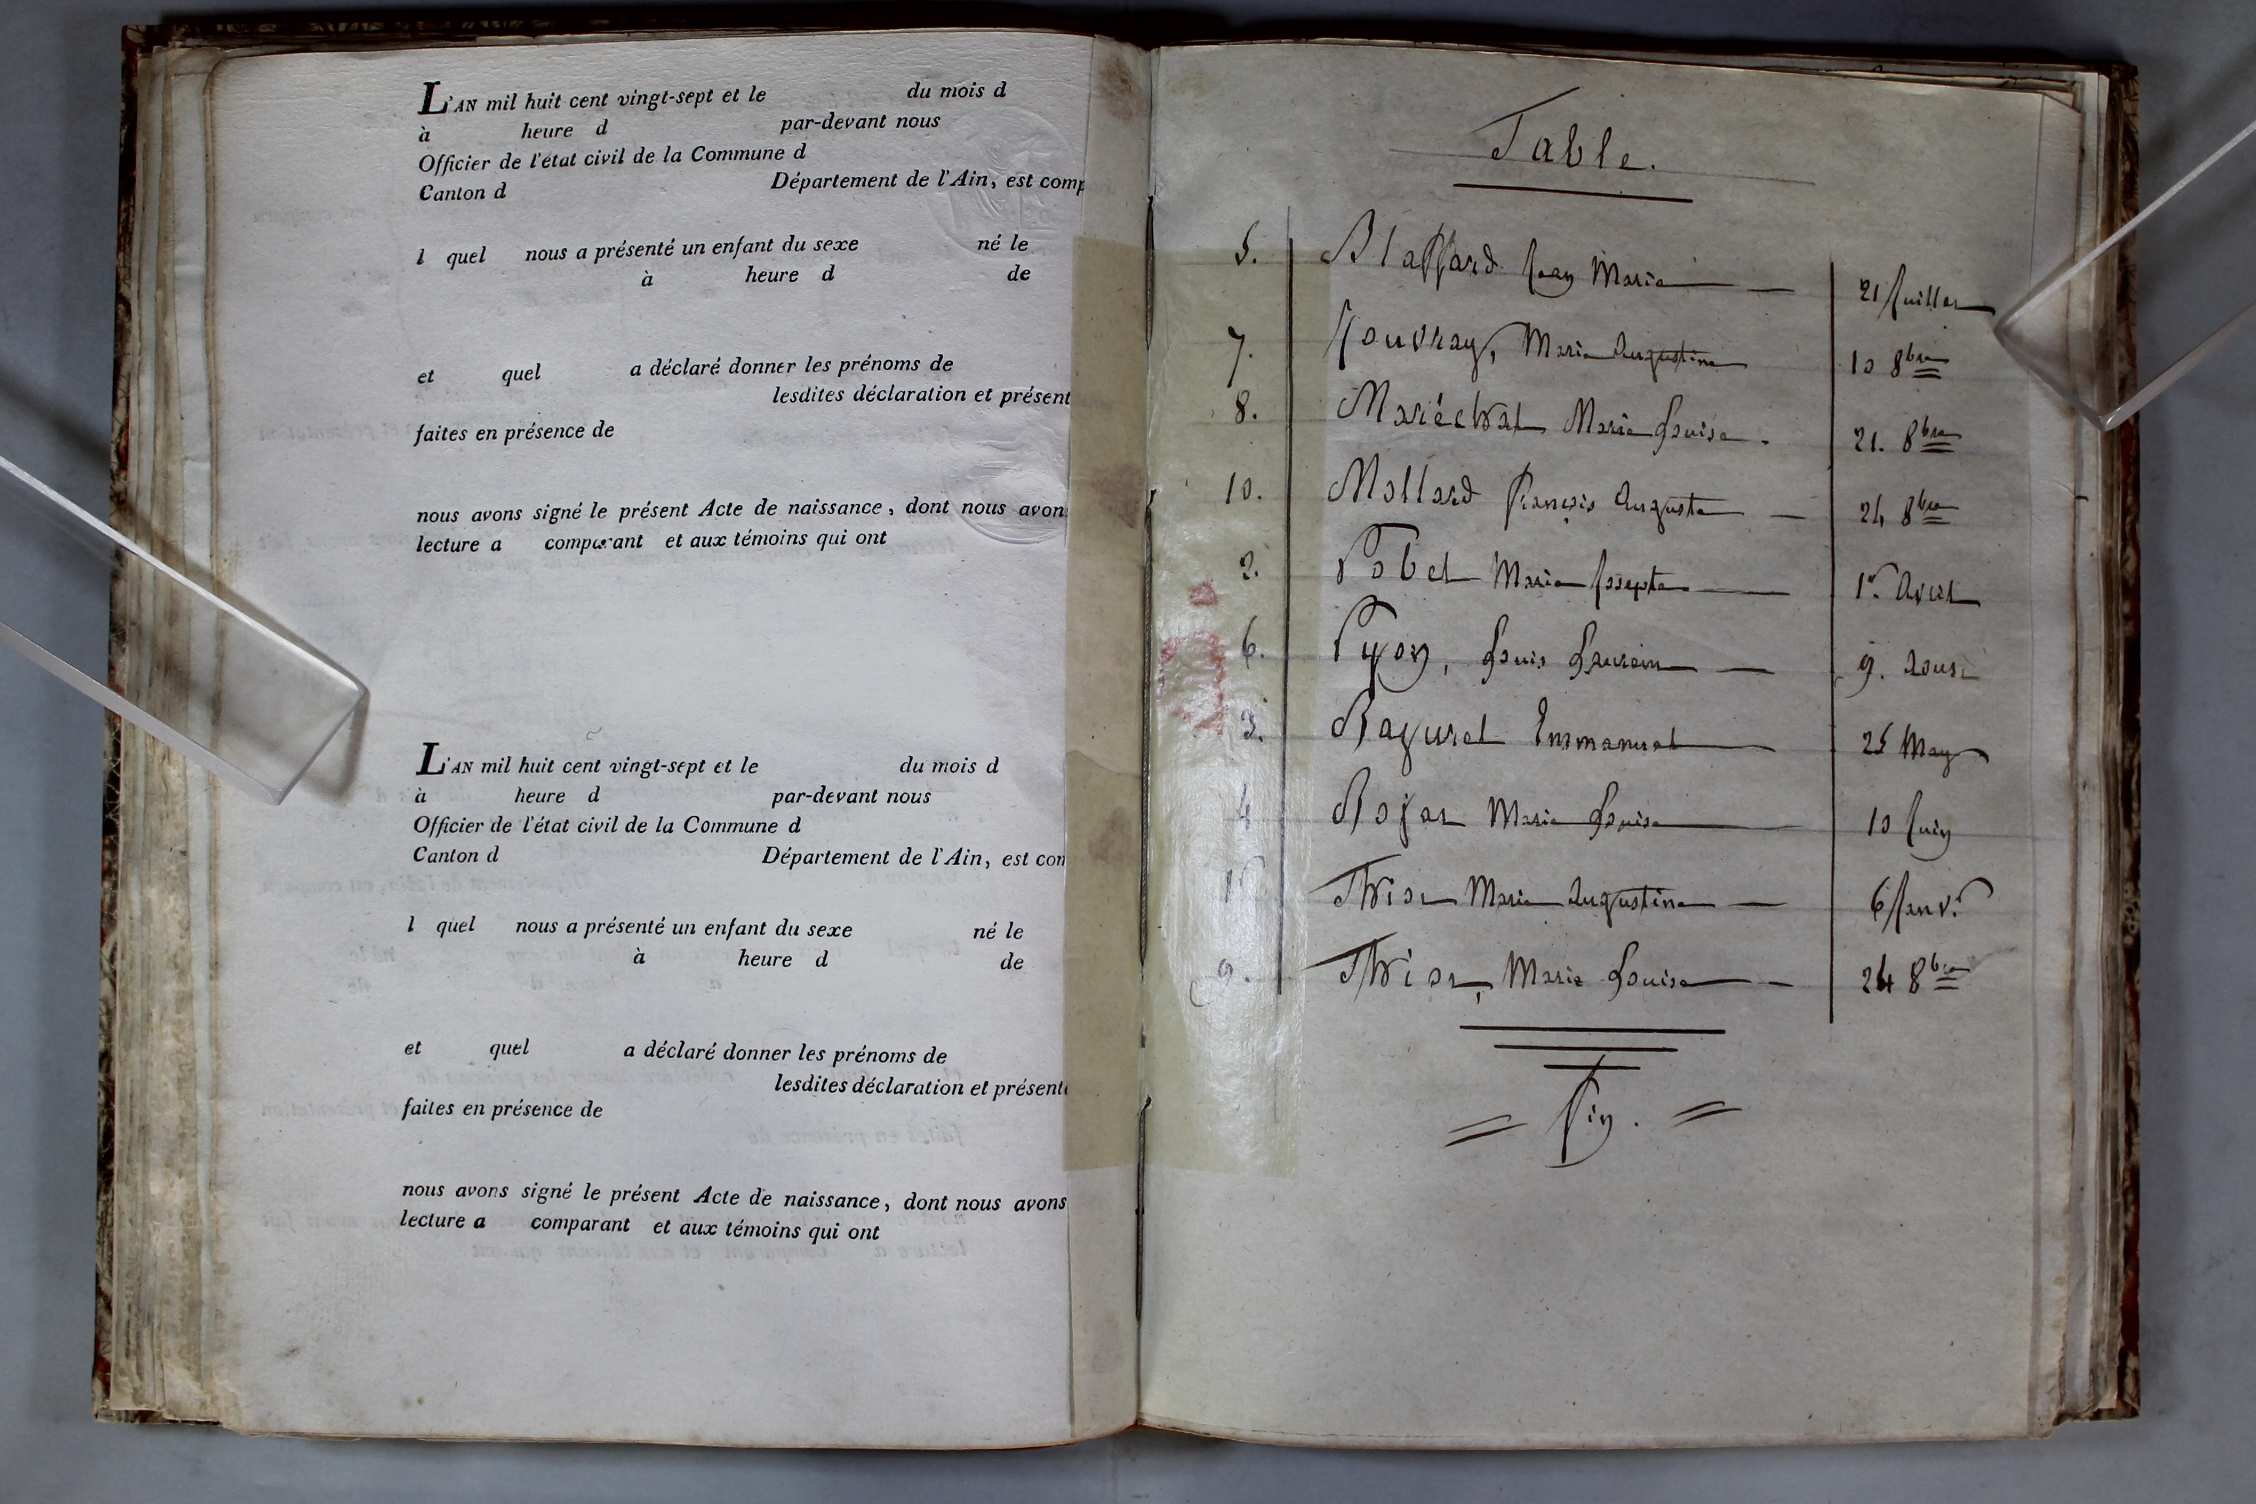 L'AN mil huit cent vingt-sept et le du mois d
à heure d par-devant nous
Officier de l'état civil de la Commune d
Canton d Département de l'Ain, est comp
l quel nous a présenté un enfant du sexe né le
à heure d de
et quel a déclaré donner les prénoms de
lesdites déclaration et présent
faites en présence de
nous avons signé le présent Acte de naissance, dont nous avon
lecture a comparant et aux témoins qui ont
L'AN mil huit cent vingt-sept et le du mois d
à heure d par-devant nous
Officier de l'état civil de la Commune d
Canton d Département de l'Ain, est com
l quel nous a présenté un enfant du sexe né le
à heure d de
et quel a déclaré donner les prénoms de
lesdites déclaration et présent
faites en présence de
nous avons signé le présent Acte de naissance, dont nous avons
lecture a comparant et aux témoins qui ont
Table.
5. Blaffard Jean Marie 21 Juillet
7. Jouvray, Marie Augustine 10 8bre
8. Maréchal Marie Louise. 21. 8bre
10. Mollard François Auguste 24 8bre
2. Pobel Marie Josepte 1er Avril
6. Pyon, Louis 9. Aoust
3. Emmanuel 25 May
4 Marie Louise 10 Juin
1 Marie Augustine 6 Janv.r
9. Marie Louise 24 8bre
Fin.